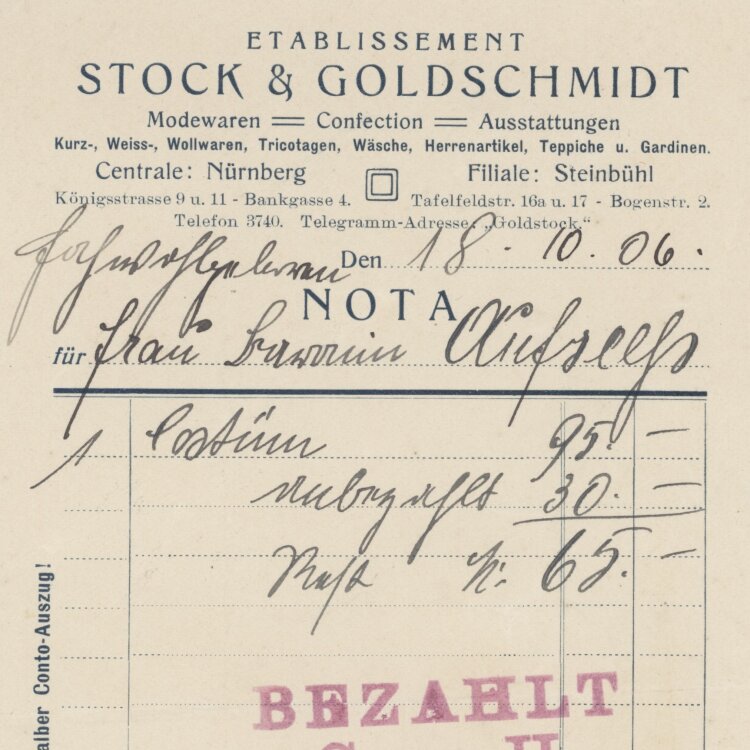 ETABLISSEMENT
STOCK & GOLDSCHMIDT
Modewaren = Confection = Ausstattungen
Kurz-, Weiss-, Wollwaren, Tricotagen, Wäsche, Herrenartikel, Teppiche u. Gardinen.
Centrale: Nürnberg Filiale: Steinbühl
Königsstrasse 9 u. 11 - Bankgasse 4. Tafelfeldstr. 16a u. 17 - Bogenstr. 2.
Telefon 3740. Telegramm-Adresse: „Goldstock.“
Hochwohlgeboren Den 18. 10. 06.
NOTA
für Frau Baronin Aufsess
1 Costüm 95. —
anbezahlt 30. —
Rest M. 65. —
alber Conto-Auszug!
BEZAHLT